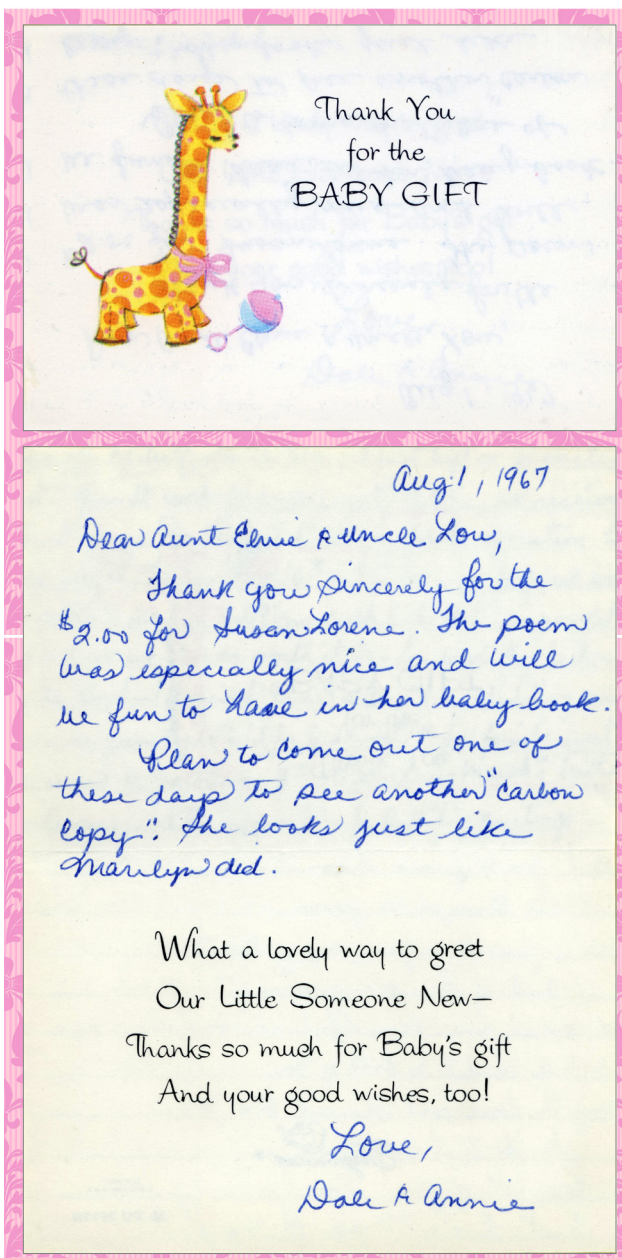 Thank You
for the
BABY GIFT
Aug. 1, 1967
Dear Aunt Elsie & Uncle Lou,
Thank you sincerely for the
$2.00 for Susan Lorene. The poem
was especially nice and will
be fun to have in her baby book.
Plan to come out one of
these days to see another "carbon
copy". She looks just like
Marilyn did.
What a lovely way to greet
Our Little Someone New—
Thanks so much for Baby's gift
And your good wishes, too!
Love,
Dale & Annie